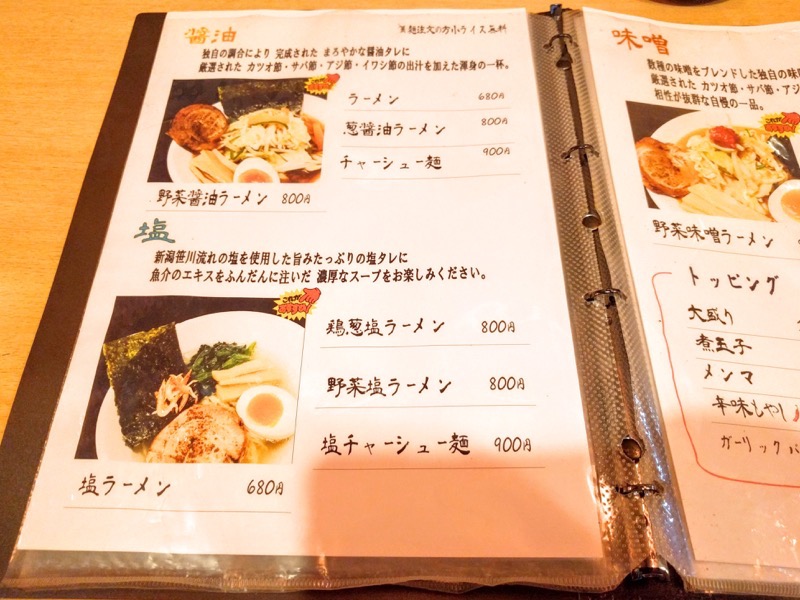 醤油
麺注文の方小ライス無料
独自の調合により 完成された まろやかな醤油タレに
厳選された カツオ節・サバ節・アジ節・イワシ節の出汁を加えた渾身の一杯。
これがおすすめ!
ラーメン 680円
葱醤油ラーメン 800円
チャーシュー麺 900円
野菜醤油ラーメン 800円
塩
新潟笹川流れの塩を使用した旨みたっぷりの塩タレに
魚介のエキスをふんだんに注いだ 濃厚なスープをお楽しみください。
これがおすすめ!
鶏葱塩ラーメン 800円
野菜塩ラーメン 800円
塩チャーシュー麺 900円
塩ラーメン 680円
味噌
数種の味噌をブレンドした独自の味
厳選された カツオ節・サバ節・アジ
相性が抜群な自慢の一品。
野菜味噌ラーメン
トッピング
大盛り
煮玉子
メンマ
辛味もやし
ガーリック